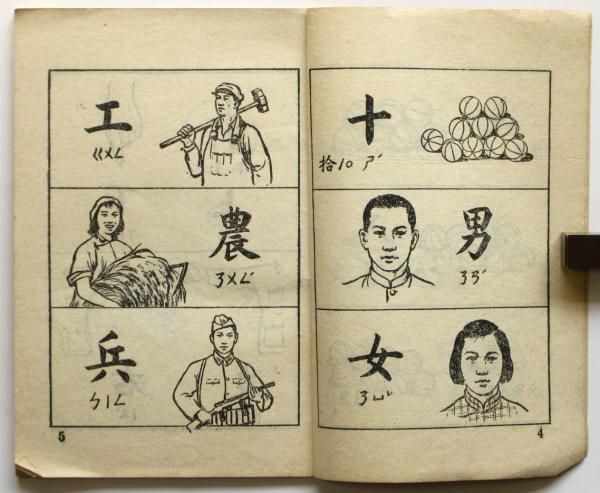 十
拾10 ㄕˊ
男
ㄋㄢˊ
女
ㄋㄩˇ
4
工
ㄍㄨㄥ
農
ㄋㄨㄥˊ
兵
ㄅㄧㄥ
5